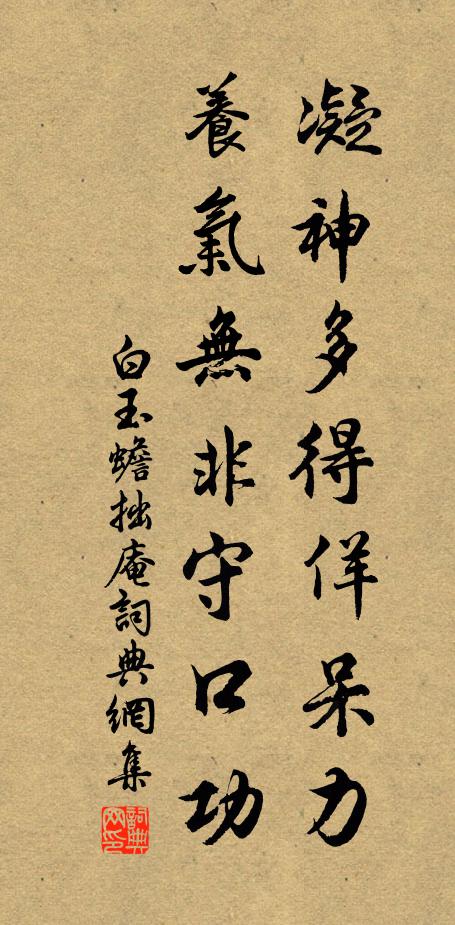 凝神多得佯呆力
養氣無非守口功
白玉蟾拙庵詞典網集
詞典网印